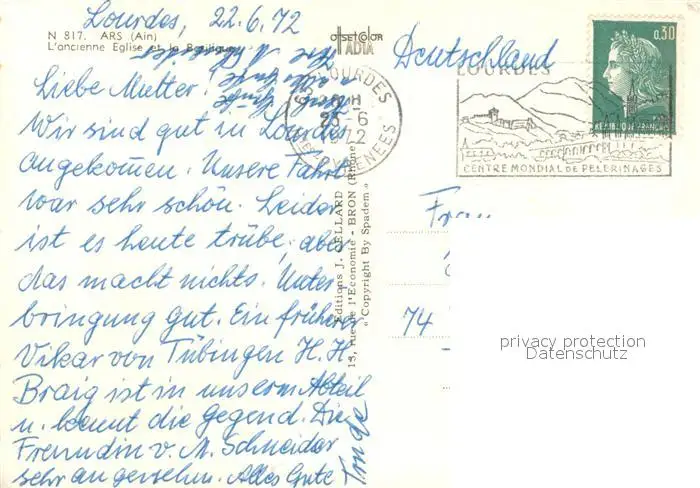 Lourdes, 22.6.72
N 817. ARS (Ain)
L'ancienne Eglise et la Basilique
OFFSETCOLOR
ADIA
Liebe Mutter!
Wir sind gut in Lourdes
angekommen. Unsere Fahrt
war sehr schön. Leider
ist es heute trübe, aber
das macht nichts. Unter
bringung gut. Ein früherer
Vikar von Tübingen H. H.
Braig ist in unserm Abteil
u. kennt die Gegend. Die
Freundin v. M. Schneider
sehr angesehen. Alles Gute
Editions J. CELLARD
15, rue de l'Economie - BRON (Rhône)
« Copyright By Spadem »
Deutschland
LOURDES
23-6
1972
PYRENEES
LOURDES
CENTRE MONDIAL DE PELERINAGES
0,30
REPUBLIQUE FRANCAISE
Frau
74
privacy protection
Datenschutz